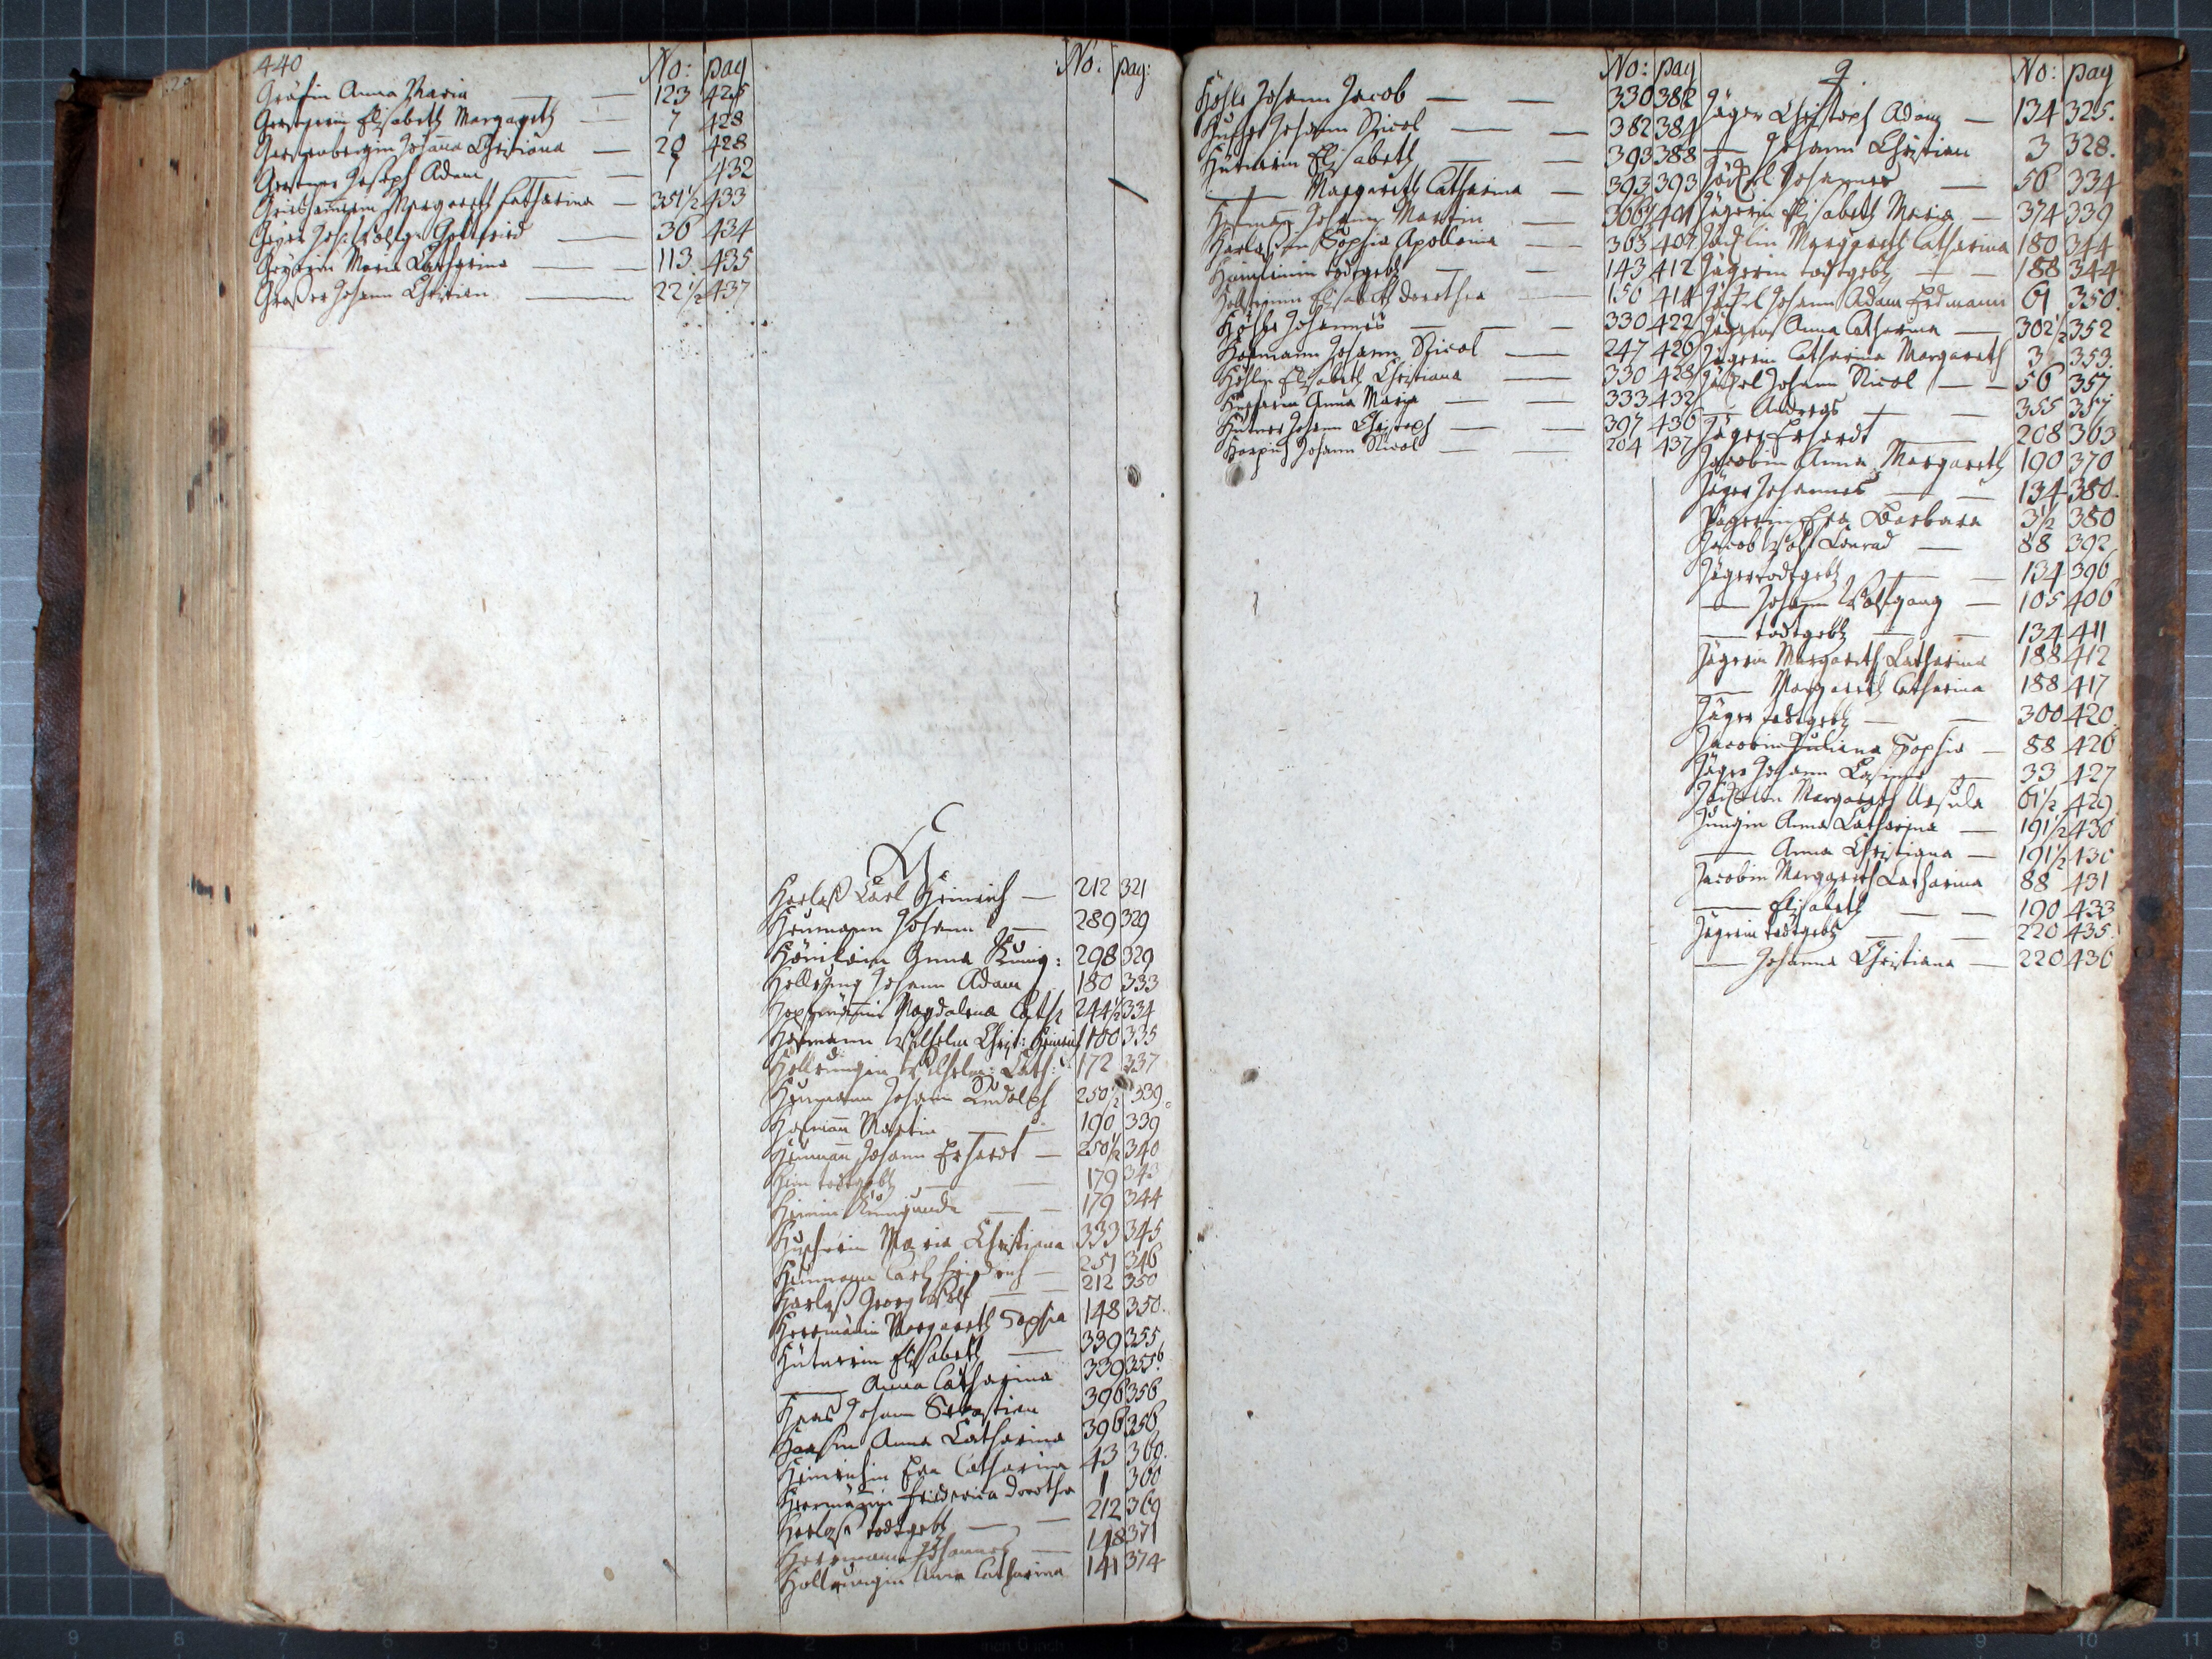 440
No: pag
Gräfin Anna Maria 123 425
Elisabeth Margareth 7 428
Gerstenbergin Johanna Christiana 20 428
Gerstner Joseph Adam 1 432
Margareth Catharina 351½ 433
Geyer Joh: Wolfg: Gottfried 36 434
Geyerin Maria Catharina 113 435
Graßer Johann Christian 22½ 437
No. pag:
H
Harlaß Carl Heinrich 212 321
Heumann Johann 289 329
Anna Kunig: 298 329
Hollrung Johann Adam 180 333
Magdalena Cath 244½ 334
Hofmann Wilhelm Christ: Heinrich 100 335
Hollrungin Wilhelm: Cath: 172 337
Heumann Johann Rudolph 250½ 339
Hofmañ Martin 190 339
Heumañ Johann Erhardt 250½ 340
todtgeb 179 343
Kunigunda 179 344
Maria Christiana 333 345
Heumann Carl Friedrich 251 346
Harlaß Georg Wolf 212 350
Herrmännin Margareth Sophia 148 350.
Hütnerin Elisabeth 339 355
— Anna Catharina 339 355
Haas Johann Sebastian 396 356
Haasin Anna Catharina 396 356
Heinrichin Eva Catharina 43 360.
Herrmännin Friderica Dorothea 1 360
Harlaß todtgeb 212 369
Herrmann Johannes 148 371
Hollrungin Anna Catharina 141 374
No: pag
Höhle Johann Jacob 330 382
Johann Nicol 382 384
Hütnerin Elisabeth 393 388
— Margareth Catharina 393 393
Johann Martin
Harlaßin Sophia Apollonia 363 407
todtgeb 143 412
Elisabeth Dorothea 150 414
Höhle Johannes 330 422
Hofmann Johann Nicol 247 426
Höhlin Elisabeth Christiana 330 428
Anna Maria 333 432
Hütner Johann Christoph 397 436
Johann Nicol 204 437
J
No: pag
Jäger Christoph Adam 134 325.
— Johann Christian 3 328.
Jäckel Johannes 56 334
Jägerin Elisabeth Maria 374 339
Jäcklin Margareth Catharina 180 344
Jägerin todtgeb 188 344
Jäckel Johann Adam Erdmann 61 350.
Jägerin Anna Catharina 302½ 352
Jägerin Catharina Margareth 3 353.
Jäckel Johann Nicol 56 357
— Andreas 355 357
Jäger Erhardt 208 363
Jacobin Anna Margareth 190 370
Jäger Johannes 134 380.
Jägerin Eva Barbara 3½ 380
Jacob Wolf Conrad 88 392
Jäger todtgeb 134 396
— Johann Wolfgang 105 406
— todtgeb 134 411
Jägerin Margareth Catharina 188 412
— Margareth Catharina 188 417
Jäger todtgeb 300 420.
Jacobin Juliana Sophia 88 426
Jäger Johann Casimir 33 427
Margareth Ursula 61½ 429
Jungin Anna Catharina 191½ 430
— Anna Christiana 191½ 430
Jacobin Margareth Catharina 88 431
— Elisabeth 190 433
Jägerin todtgeb 220 435.
— Johanna Christiana 220 436